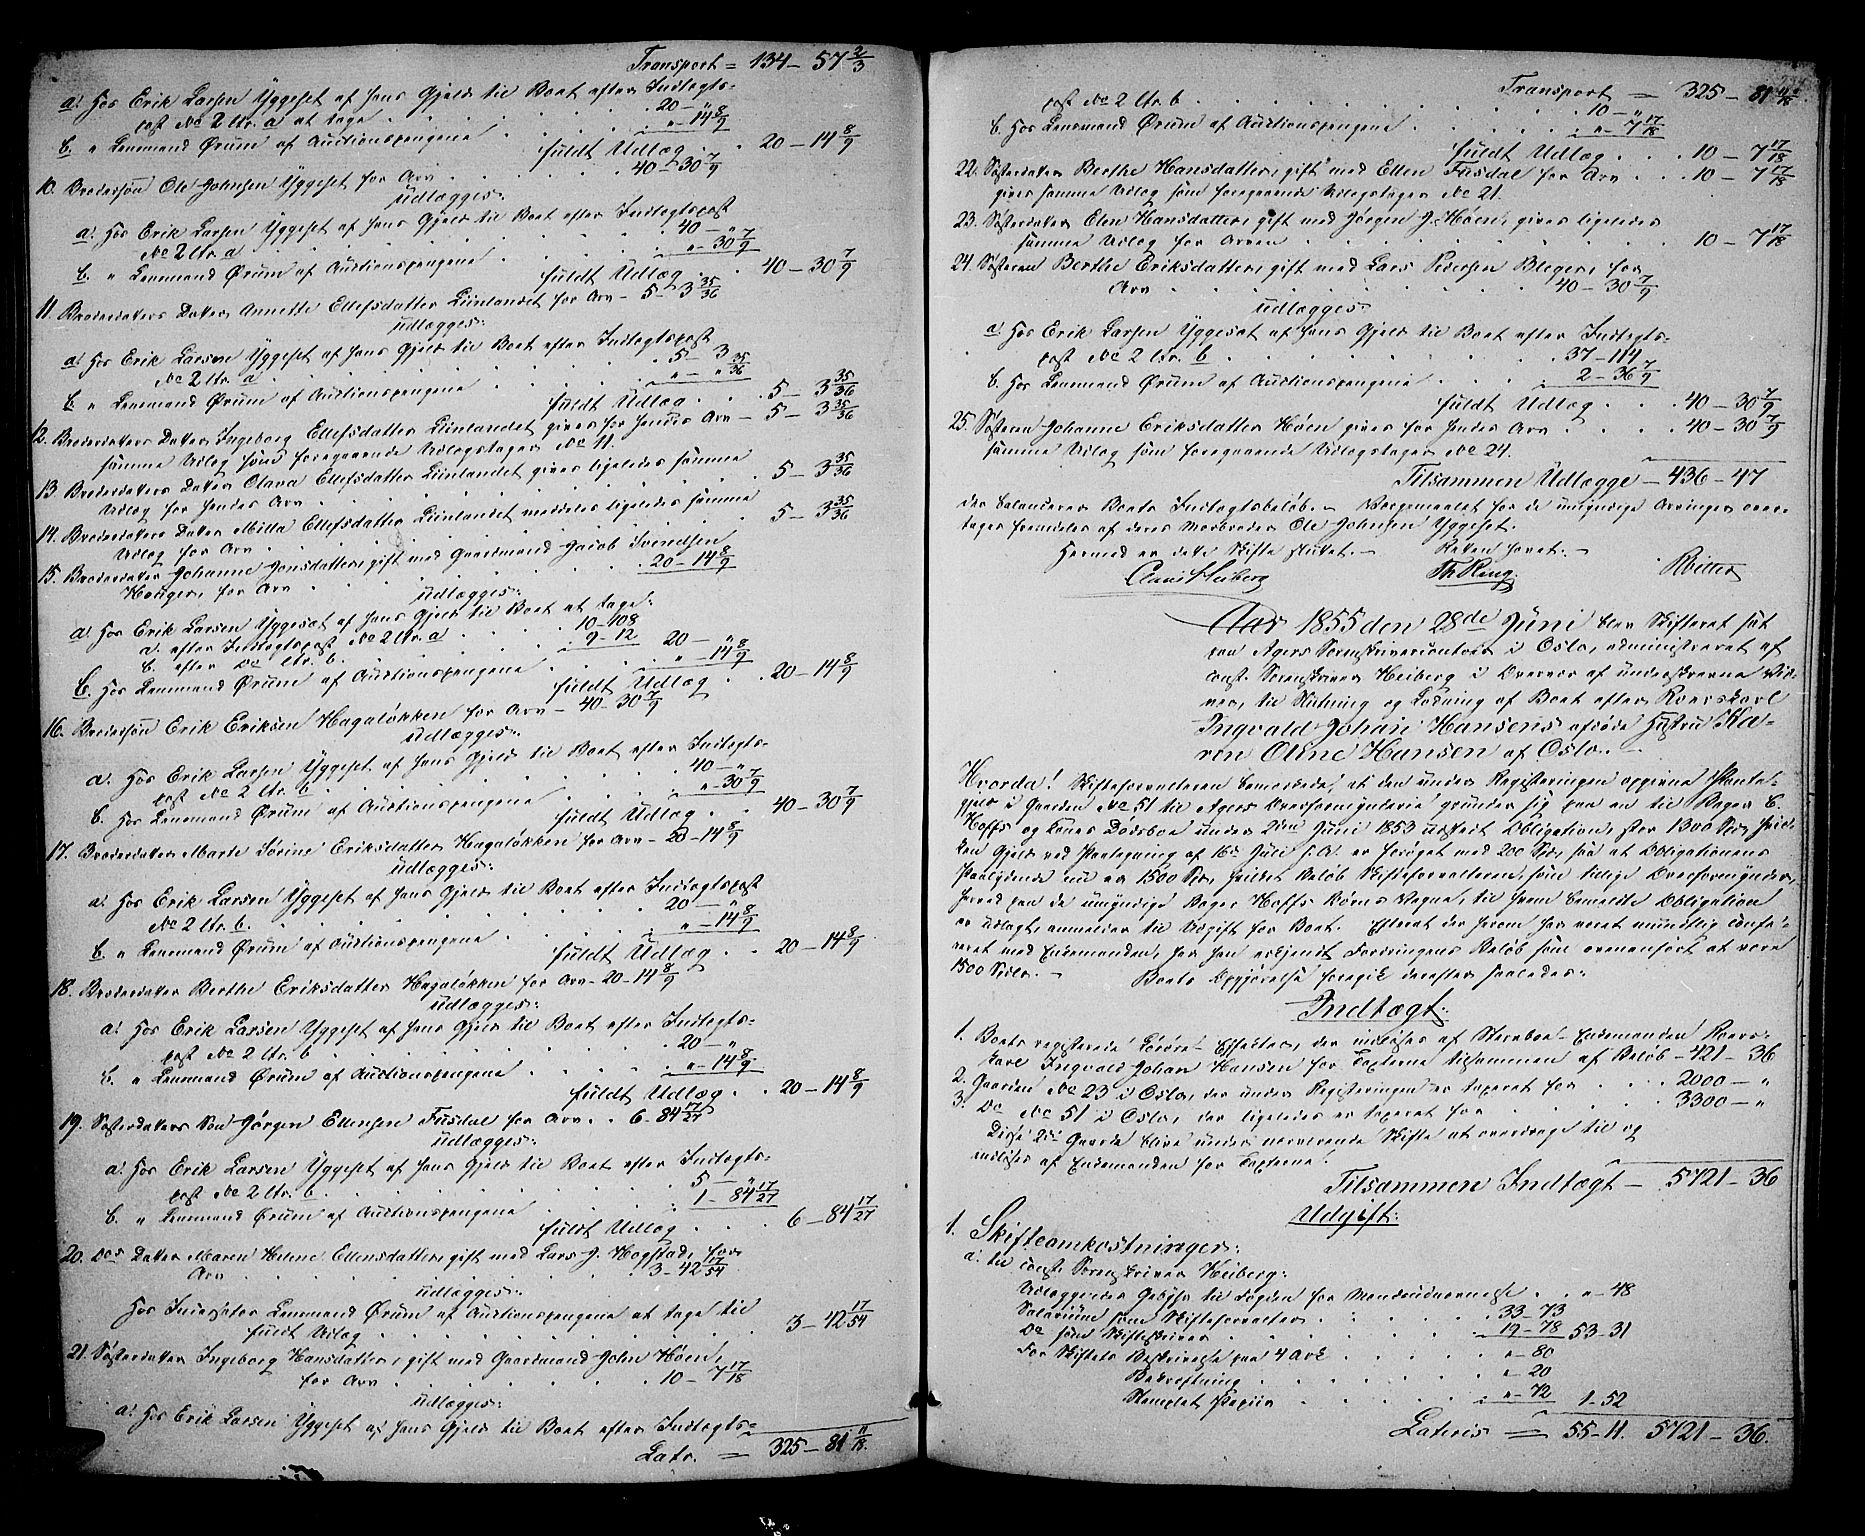 Transport = 134 – 57 2/3
a. hos Erik Larsen Yggeset af hans Gjeld til Boet efter Indtægts-
post No 2 ltr. a at tage . . . 20 – "
b. " Lensmand Ørum af Auctionspengene . . . " – 14 8/9
fuldt Udlæg . . 20 – 14 8/9
10. Brodersøn Ole Johnsen Yggeset for Arv . . . 40 – 30 7/9
udlægges:
a. hos Erik Larsen Yggeset af hans Gjeld til Boet efter Indtægtspost
No 2 ltr. a . . . 40 – "
b. " Lensmand Ørum af Auctionspengene . . . " – 30 7/9
fuldt Udlæg . . 40 – 30 7/9
11. Broderdaters Dater Annette Ellefsdatter Liinlandet for Arv – 5 – 3 35/36
udlægges:
a. hos Erik Larsen Yggeset af hans Gjeld til Boet efter Indtægtspost
No 2 ltr. a . . . 5 – 3
b. " Lensmand Ørum af Auctionspengene . . . " – " 35/36
fuldt Udlæg . . 5 – 3 35/36
12. Broderdaters Dater Ingeborg Ellefsdatter Liinlandet gives for hendes Arv – 5 – 3 35/36
samme Udlæg som foregaaende Udlægstager No 11.
13. Broderdaters Dater Olava Ellefsdatter Liinlandet gives ligeledes samme
Udlæg for hendes Arv . . . 5 – 3 35/36
14. Broderdaters Dater Milla Ellefsdatter Liinlandet meddeles ligeledes samme
Udlæg for Arv . . . 5 – 3 35/36
15. Broderdater Johanne Jonsdatter, gift med Gaardmand Jacob Svendsen
Hougen, for Arv . . . 20 – 14 8/9
udlægges:
a. hos Erik Larsen Yggeset af hans Gjeld til Boet at tage:
a. efter Indtægtspost No 2 ltr. a . . . 10 – 108
b. efter do ltr. b. . . . 9 – 12 20 – "
b. hos Lensmand Ørum af Auctionspengene . . . " – 14 8/9
fuldt Udlæg . . 20 – 14 8/9
16. Brodersøn Erik Eriksen Hagaløkken for Arv – 40 – 30 7/9
udlægges:
a. hos Erik Larsen Yggeset af hans Gjeld til Boet efter Indtægts-
post No 2 ltr. b . . . 40 – "
b. hos Lensmand Ørum af Auctionspengene . . . " – 30 7/9
fuldt Udlæg . . 40 – 30 7/9
17. Broderdater Marte Sørine Eriksdatter Hagaløkken for Arv – 20 – 14 8/9
udlægges:
a. hos Erik Larsen Yggeset af hans Gjeld til Boet efter Indtægtspost
No 2 ltr. b. . . . 20 – "
b. " Lensmand Ørum af Auctionspengene . . . " – 14 8/9
fuldt Udlæg . . 20 – 14 8/9
18. Broderdater Berthe Eriksdatter Hagaløkken for Arv – 20 – 14 8/9
udlægges:
a. hos Erik Larsen Yggeset af hans Gjeld til Boet efter Indtægts-
post No 2 ltr. b . . . 20 – "
b. " Lensmand Ørum af Auctionspengene . . . " – 14 8/9
fuldt Udlæg . . 20 – 14 8/9
19. Søsterdaters Søn Jørgen Ellensen Fusdal for Arv . . 6 – 84 17/27
udlægges:
a. hos Erik Larsen Yggeset af hans Gjeld til Boet efter Indtægts-
post No 2 ltr. b . . . 5 – "
b. " Lensmand Ørum af Auctionspengene . . . 1 – 84 17/27
fuldt Udlæg . . . 6 – 84 17/27
20. Dos Dater Maren Helene Ellensdatter, gift med Lars J. Hogstad, for
Arv . . . 3 – 42 17/54
udlægges:
hos Lensmand Ørum af Auctionspengene at tage til
fuldt Udlæg . . . 3 – 42 17/54
21. Søsterdater Ingeborg Hansdatter, gift med Gaardmand John Høen,
for Arv . . . 10 – 7 17/18
udlægges:
a. hos Erik Larsen Yggeset af hans Gjeld til Boet efter Indtægts-
Latr. = 325 – 81 11/18.
Transport = 325 – 81 11/18
post No 2 ltr. b . . . 10 – "
b. hos Lensmand Ørum af Auctionspengene . . . " – 7 17/18
fuldt Udlæg . . . 10 – 7 17/18
22. Søsterdater Berthe Hansdatter, gift med Ellen Fusdal for Arv . . . 10 – 7 17/18
gives samme Udlæg som foregaaende Udlægstager No 21.
23. Søsterdater Elen Hansdatter, gift med Jørgen J. Høen, gives ligeledes
samme Udlæg for Arven . . . 10 – 7 17/18
24. Søsteren Berthe Eriksdatter, gift med Lars Pedersen Bleger, for
Arv . . . 40 – 30 7/9
udlægges
a. hos Erik Larsen Yggeset af hans Gjeld til Boet efter Indtægts-
post No 2 ltr. b . . . 37 – 114
b. hos Lensmand Ørum af Auctionspengene . . . 2 – 36 7/9
fuldt Udlæg . . . 40 – 30 7/9
25. Søsteren Johanne Eriksdatter Høen gives for hendes Arv . . . 40 – 30 7/9
samme Udlæg som foregaaende Udlægstager No 24.
Tilsammen Udlægge – 436 – 47
der balancerer Boets Indtægtsbeløb. – Værgemaalet for de umyndige Arvinger over-
tages fremdeles af deres Morbroder Ole Johnsen Yggeset.
Hermed er dette Skifte sluttet. – Retten hævet. –
Heiberg Th Ring. Ritter
Aar 1855 den 28de Juni blev Skifteret sat
paa Agers Sorenskrivercontor i Oslo, administreret af
const. Sorenskriver Heiberg i Overvær af underskrevne Vid-
ner, til Slutning og Lodning af Boet efter Roerskarl
Ingvald Johan Hansens afdøde Hustru Ka-
ren Oline Hansen af Oslo. –
Hvorda! Skifteforvalteren bemærkede, at den under Registeringen opgivne Pante-
gjeld i Gaarden No 51 til Agers Overformynderie grunder sig paa en til Bager C.
Hoffs og Kones Dødsboe under 2den Juni 1853 udstedt Obligation, stor 1300 Spd, hvil-
ken Gjeld ved Paategning af 16de Juni s. A. er forøget med 200 Spd, saa at Obligationens
Paalydende nu er 1500 Spd, hvilket Beløb Skifteforvalteren, som tillige Overformynder,
herved paa de umyndige Bager Hoffs Børns Vegne, til hvem bemeldte Obligation
er udlagt, anmelder til Udgift for Boet. Efterat der herom har været mundtlig confe-
reret med Enkemanden, har han erkjendt Fordringens Beløb som ovenanført at være
1500 Spdr. – Boets Opgjørelse foregik derefter saaledes:
Indtægt:
1. Boets registerede Løsøre-Effecter, der indløses af Stervboe-Enkemanden Roers-
karl Ingvald Johan Hansen for Taxterne tilsammen af Beløb – 421 – 36
2. Gaarden No 23 i Oslo, der under Registeringen er taxeret for . . . 2000 – "
3. Do No 51 i Oslo, der ligeledes er taxeret for . . . 3300 – "
Disse 2de Gaarde blive under nærværende Skifte at overdrage til og
indløses af Enkemanden for Taxterne.
Tilsammen Indtægt – 5721 – 36
Udgift:
1. Skifteomkostninger:
a. til const. Sorenskriver Heiberg:
Udlæggende Gebyhr til Fogden for Mændsudnævnelse . . " – 48
Salarium som Skifteforvalter . . . 33 – 73
Do som Skifteskriver . . . 19 – 78 53 – 31
For Skiftets Beskrivelse paa 4 Ark . . . " – 80
Bekræftning . . . " – 20
Stemplet Papiir . . . " – 72 1 – 52
Lateris = 55 – 11. 5721 – 36.